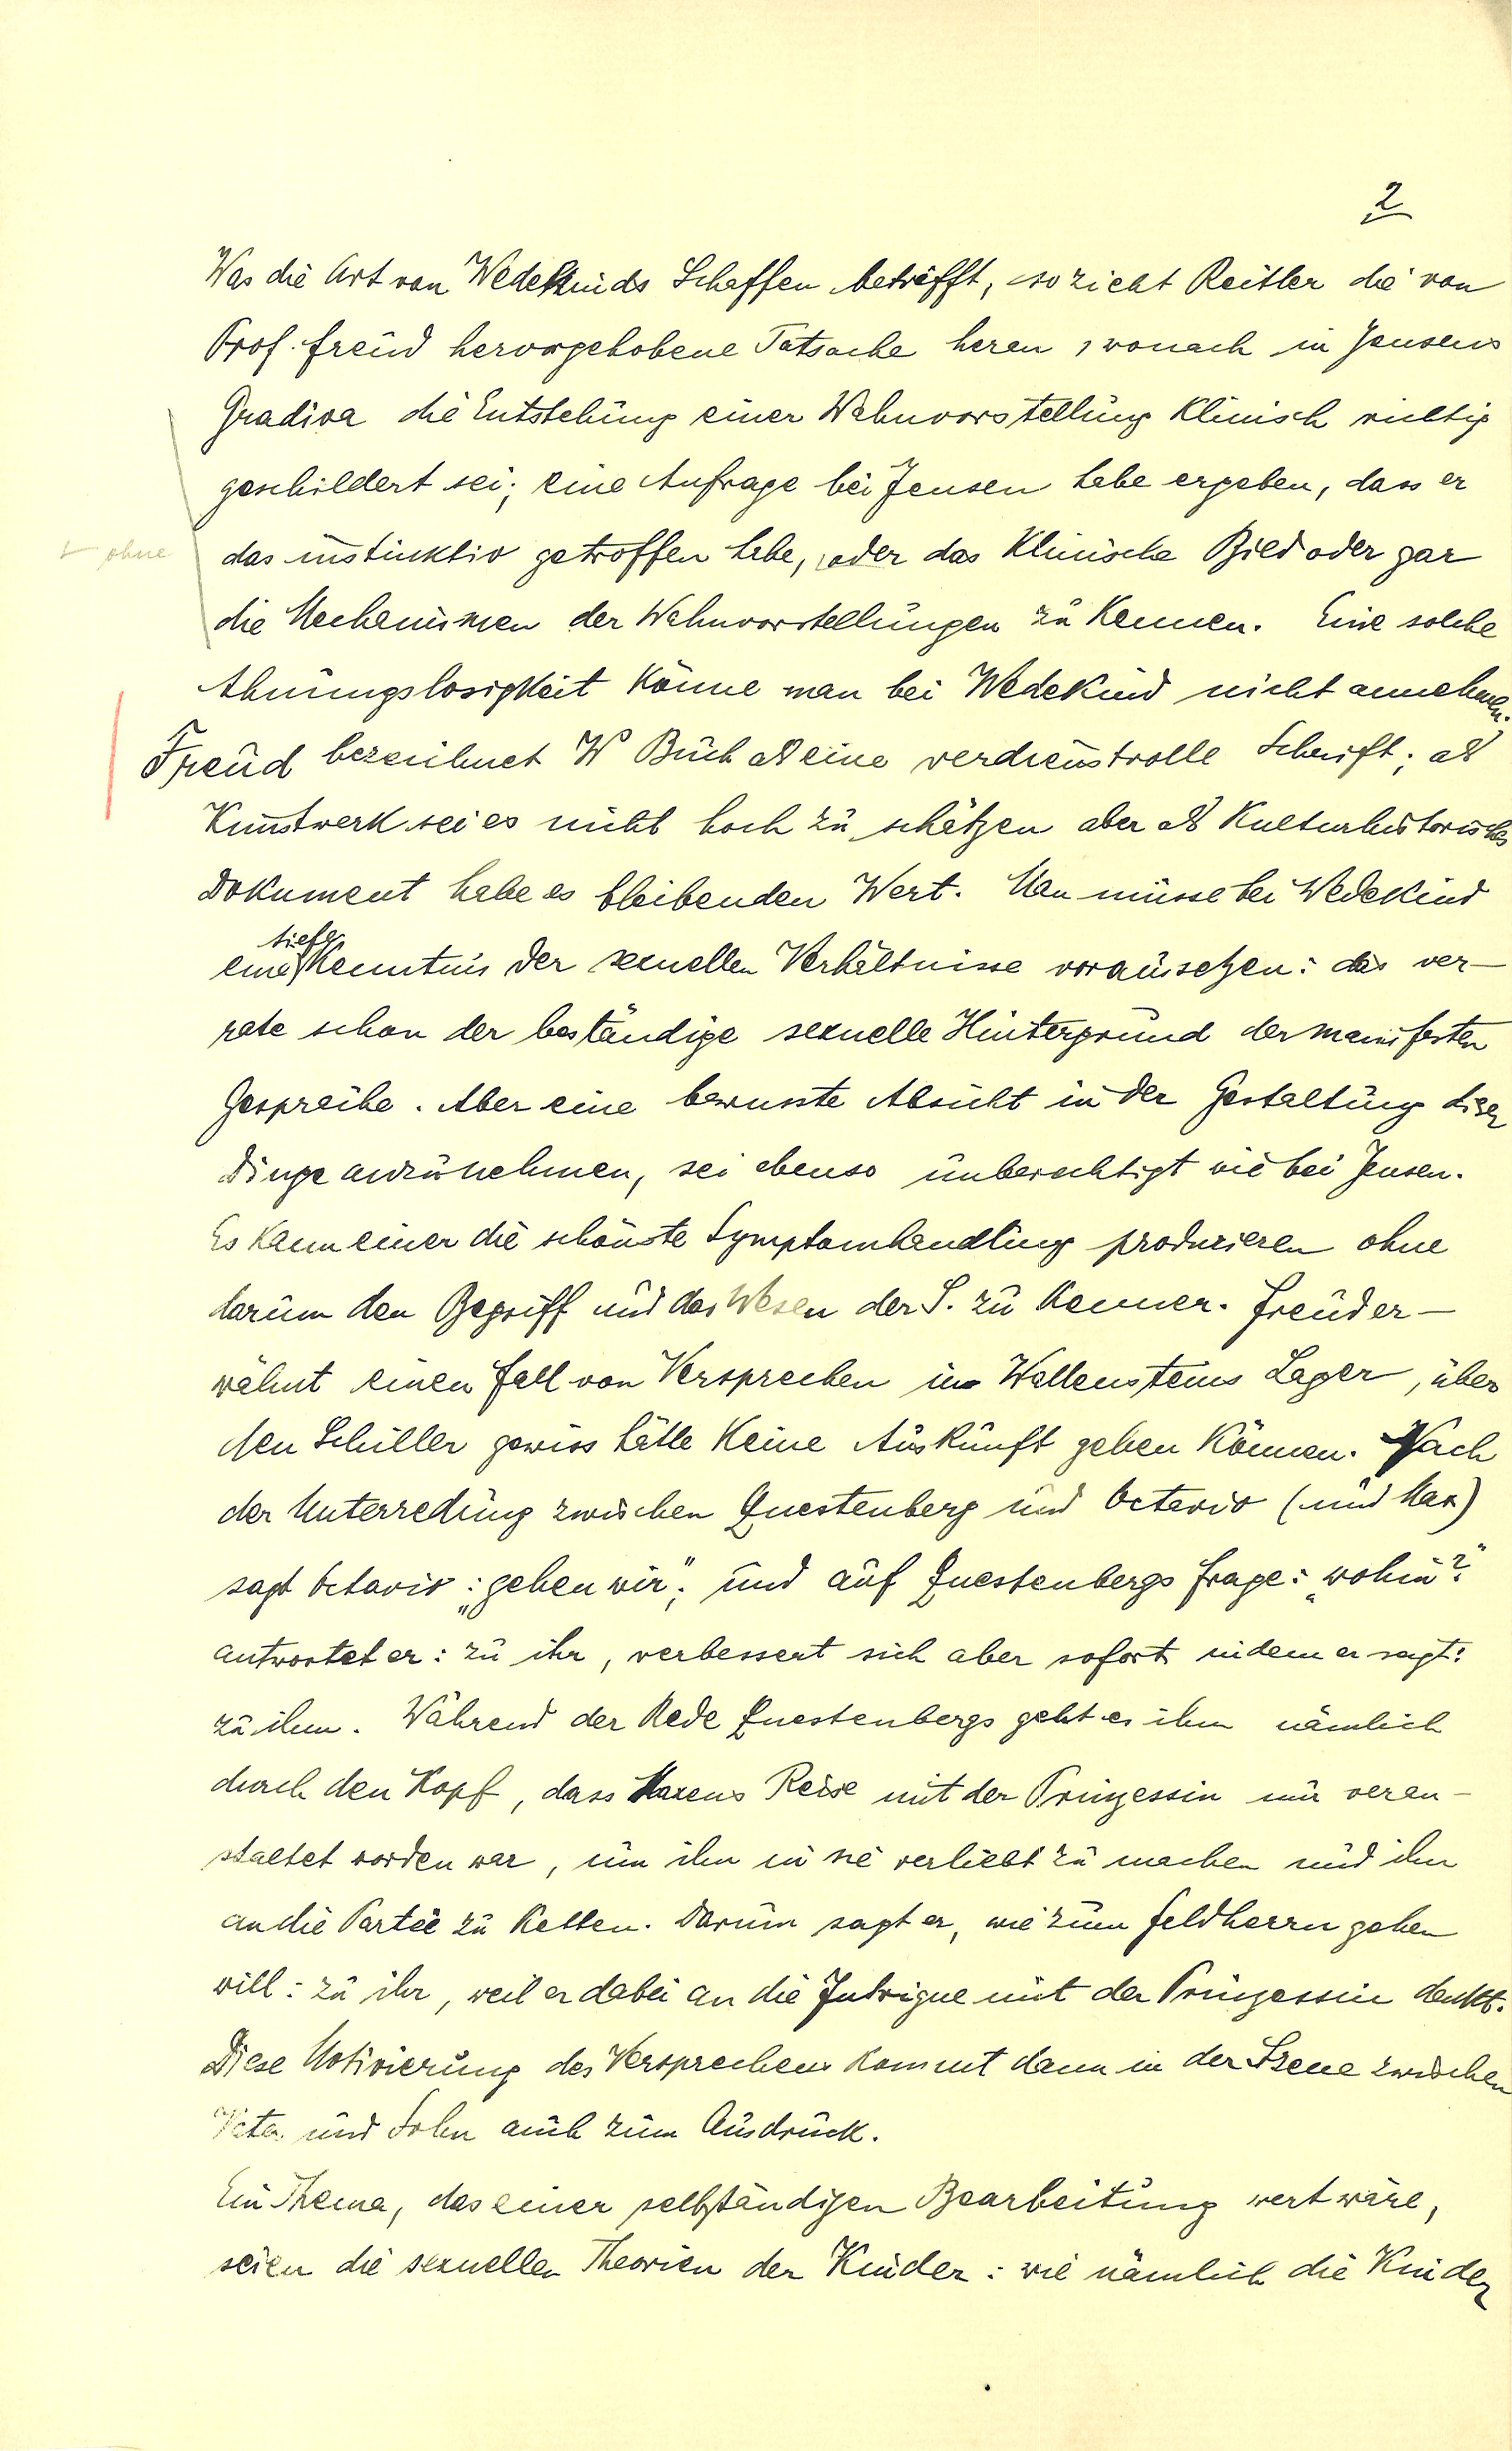 2
Was die Art von Wedekinds Schaffen betrifft, so zieht Reitler die von
Prof. Freud hervorgehobene Tatsache heran, wonach in Jensens
Gradiva die Entstehung einer Wahnvorstellung klinisch richtig
geschildert sei; eine Anfrage bei Jensen habe ergeben, dass er
+ ohne
das instinktiv getroffen habe, oder das klinische Bild oder gar
die Mechanismen der Wahnvorstellungen zu kennen. Eine solche
Ahnungslosigkeit könne man bei Wedekind nicht annehmen.
Freud bezeichnet W Buch als eine verdienstvolle Schrift; als
Kunstwerk sei es nicht hoch zu schätzen aber als kulturhistorisches
Dokument habe es bleibenden Wert. Man müsse bei Wedekind
tiefe
eine Kenntnis der sexuellen Verhältnisse voraussetzen: das ver-
rate schon der beständige sexuelle Hintergrund der manifesten
Gespräche. Aber eine bewusste Absicht in der Gestaltung dieser
Dinge anzunehmen, sei ebenso unberechtigt wie bei Jensen.
Es kann einer die schönste Symptomhandlung produzieren ohne
darum den Begriff und das Wesen der S. zu kennen. Freud er-
wähnt einen Fall von Versprechen in Wallensteins Lager, über
den Schiller gewiss hätte keine Auskunft geben können. Nach
der Unterredung zwischen Questenberg und Octavio (und Max)
sagt Octavio: „gehen wir"; und auf Questenbergs Frage: „wohin?"
antwortet er: zu ihr, verbessert sich aber sofort indem er sagt:
zu ihm. Während der Rede Questenbergs geht es ihm nämlich
durch den Kopf, dass Maxens Reise mit der Prinzessin nur veran-
staltet worden war, um ihn in sie verliebt zu machen und ihn
an die Partei zu ketten. Darum sagt er, wie zum Feldherrn gehen
will: zu ihr, weil er dabei an die Intrigue mit der Prinzessin denkt.
Diese Motivierung des Versprechens kommt dann in der Szene zwischen
Vater und Sohn auch zum Ausdruck.
Ein Thema, das einer selbständigen Bearbeitung wert wäre,
seien die sexuellen Theorien der Kinder: wie nämlich die Kinder